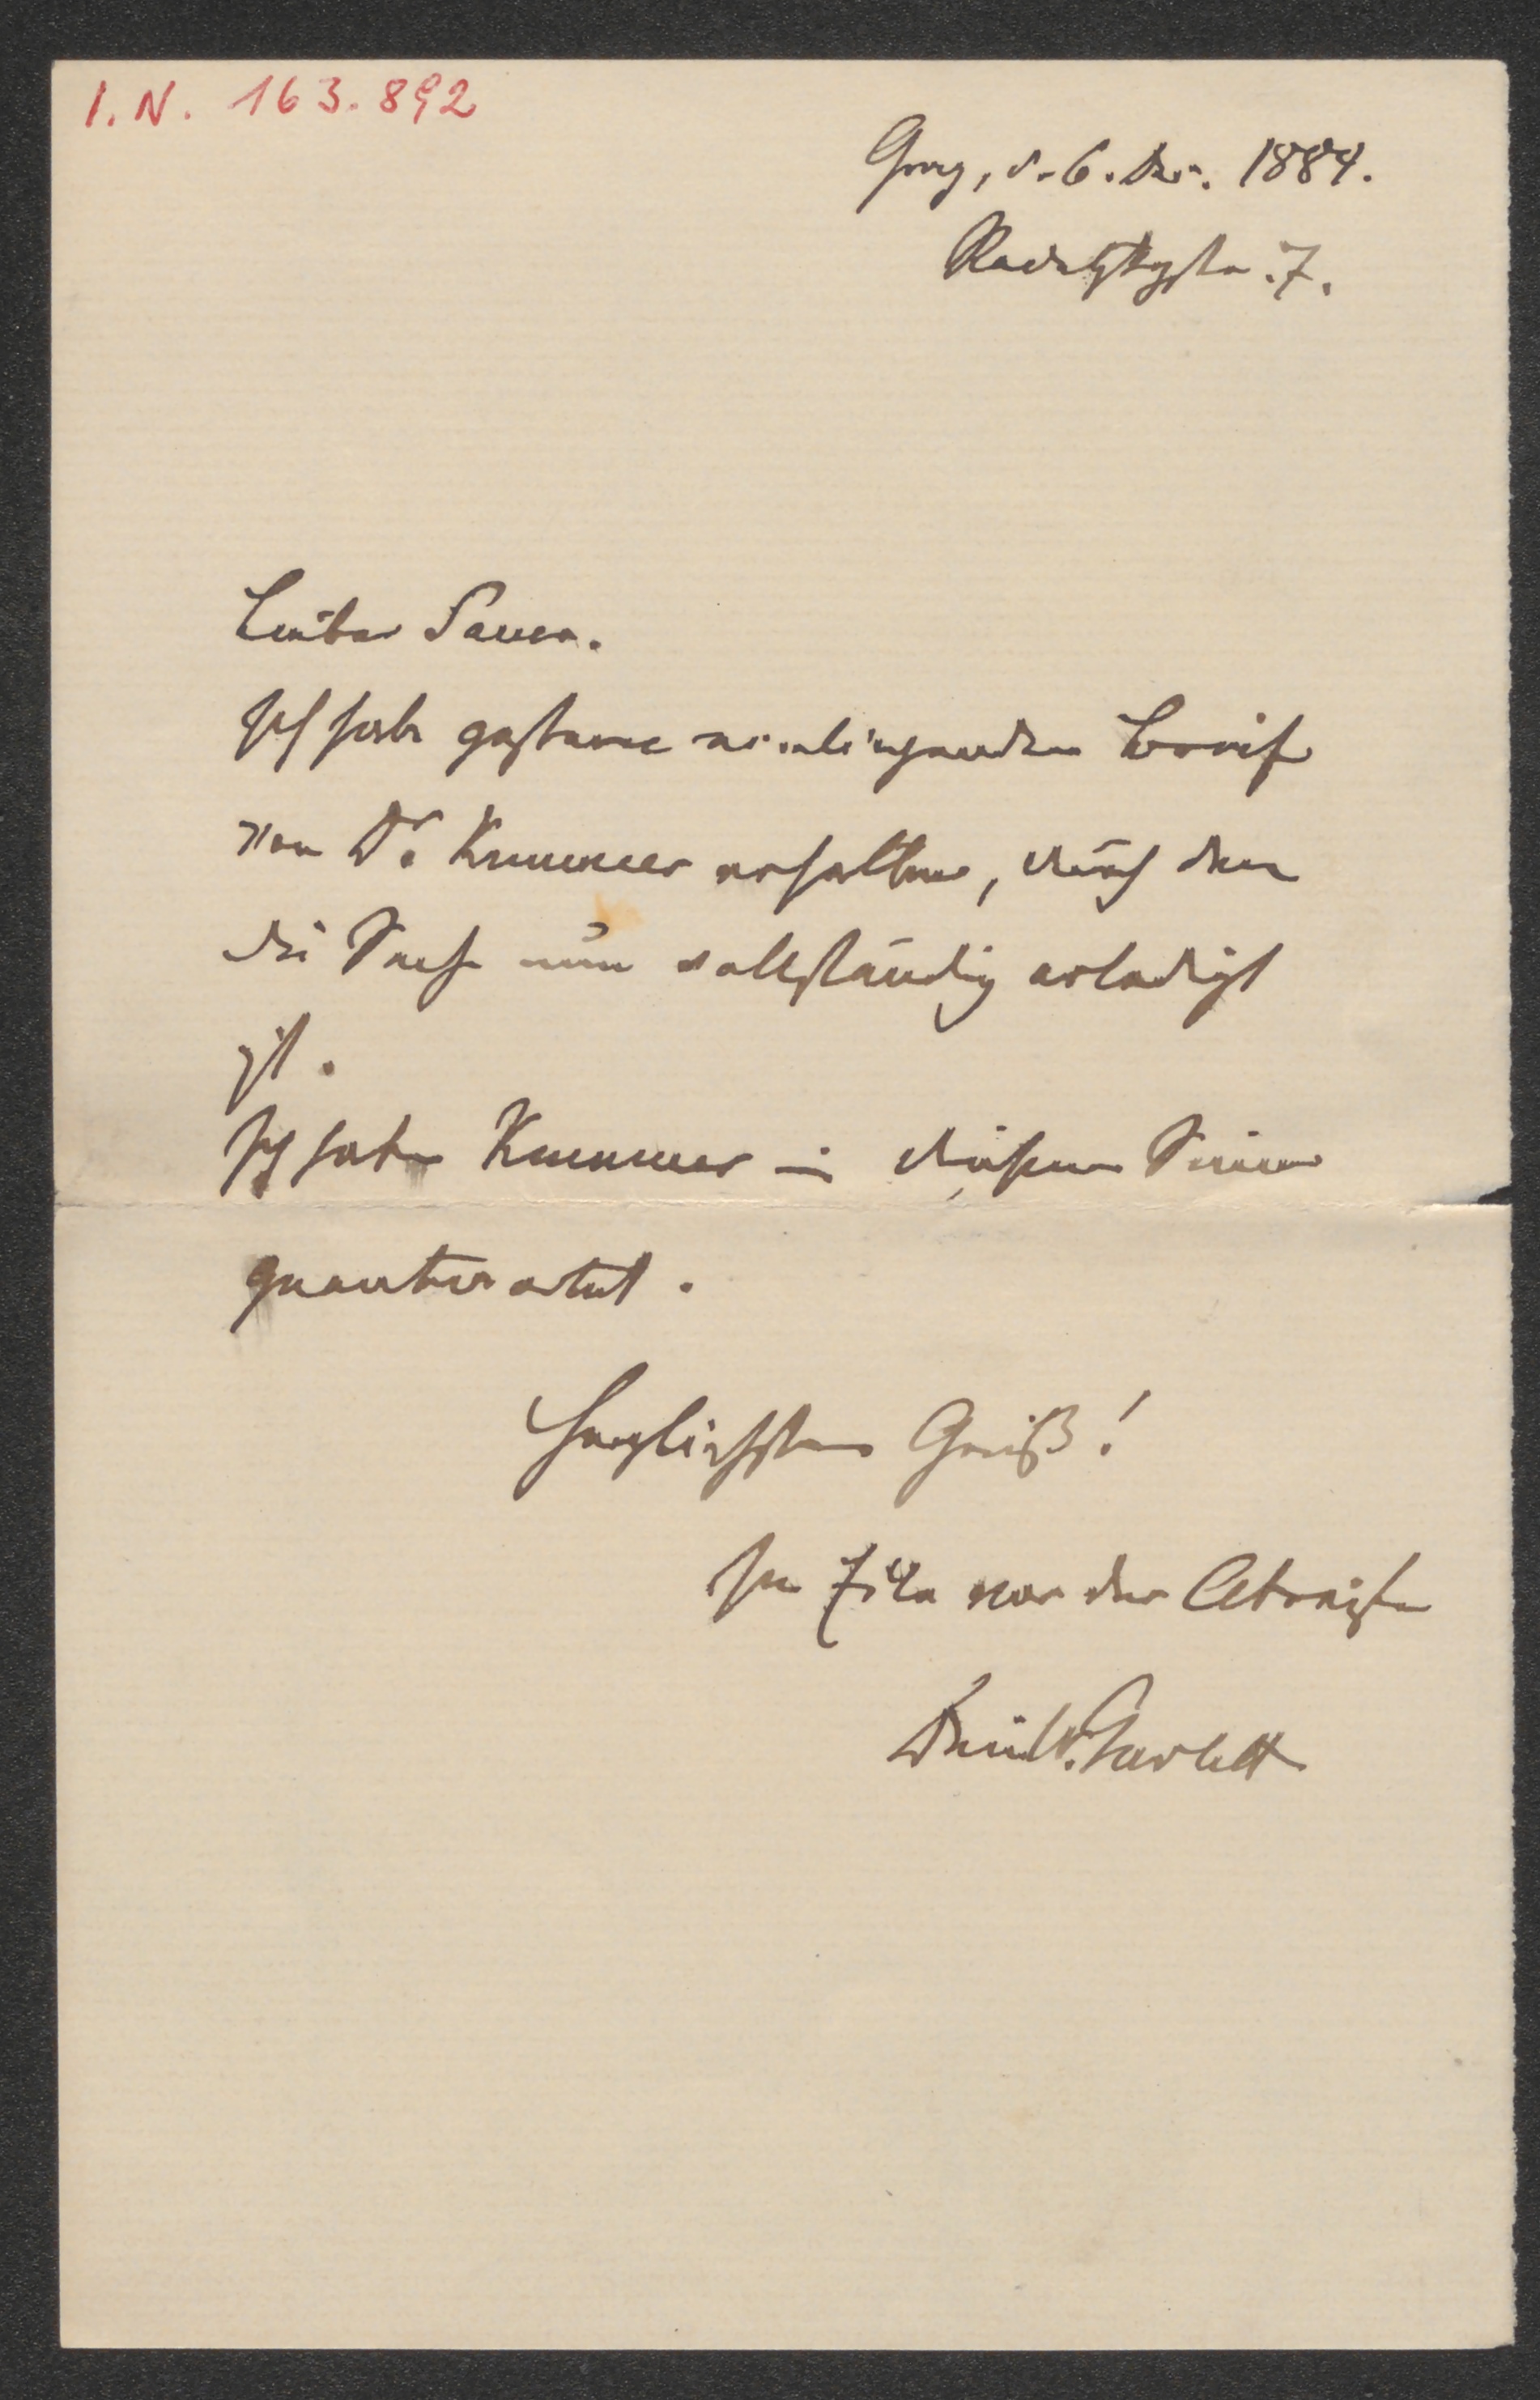 I. N. 163.892
Graz, d. 6. Dez. 1884.
Radetzkystr. 7.
Lieber Sauer.
Ich habe gestern Brief
von Dr. Kummer erhalten, durch den
die Sache nun vollständig erledigt
ist.
Ich habe Kummer in diesem Sinne
geantwortet.
Herzlichsten Gruß!
In Eile vor der Abreise
Dein W. Gurlitt